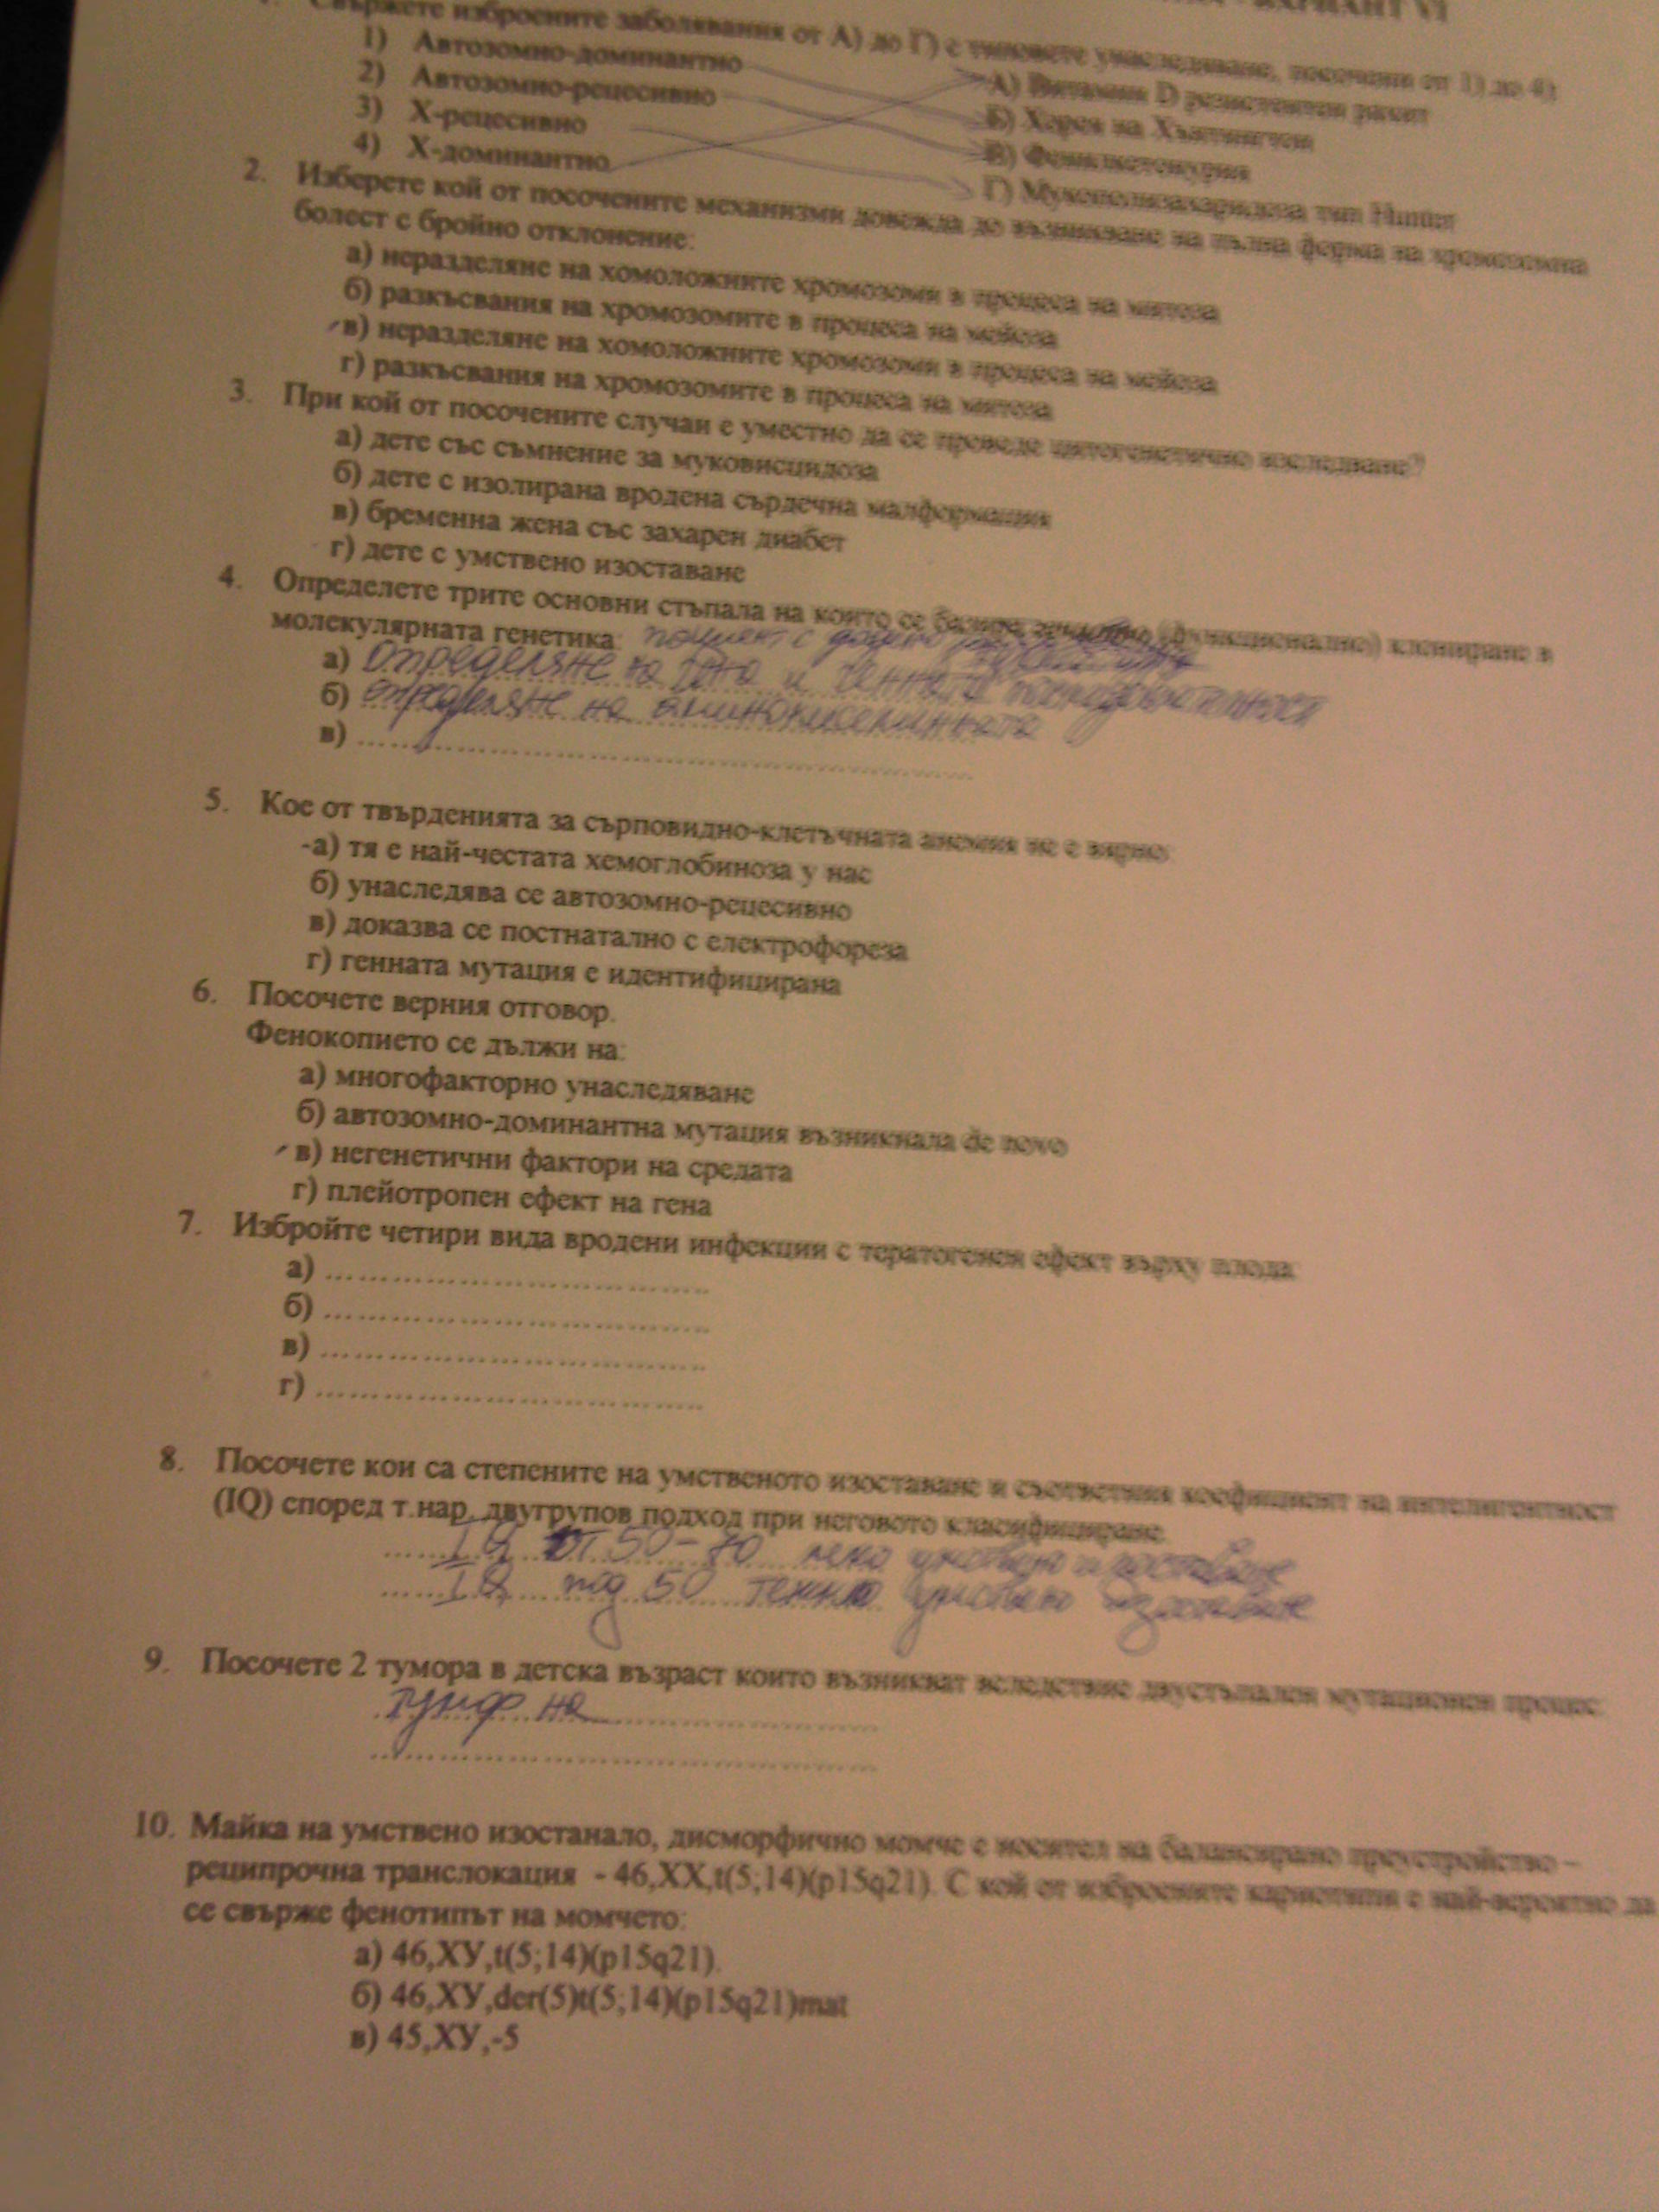 ВАРИАНТ VI
1. Свържете изброените заболявания от А) до Г) с типовете унаследяване, посочени от 1) до 4)
1) Автозомно-доминантно
А) Витамин D резистентен рахит
2) Автозомно-рецесивно
Б) Хорея на Хънтингтон
3) Х-рецесивно
В) Фенилкетонурия
4) Х-доминантно
Г) Мукополизахаридоза тип Hunter
2. Изберете кой от посочените механизми довежда до възникване на пълна форма на хромозомна
болест с бройно отклонение:
а) неразделяне на хомоложните хромозоми в процеса на митоза
б) разкъсвания на хромозомите в процеса на мейоза
в) неразделяне на хомоложните хромозоми в процеса на мейоза
г) разкъсвания на хромозомите в процеса на митоза
3. При кой от посочените случаи е уместно да се проведе цитогенетично изследване?
а) дете със съмнение за муковисцидоза
б) дете с изолирана вродена сърдечна малформация
в) бременна жена със захарен диабет
г) дете с умствено изоставане
4. Определете трите основни стъпала на които се базира (функционално) клониране в
молекулярната генетика: пациент с
а) Определяне на гена и
б) определяне на
в)
5. Кое от твърденията за сърповидно-клетъчната анемия не е вярно
-а) тя е най-честата хемоглобиноза у нас
б) унаследява се автозомно-рецесивно
в) доказва се постнатално с електрофореза
г) генната мутация е идентифицирана
6. Посочете верния отговор.
Фенокопието се дължи на:
а) многофакторно унаследяване
б) автозомно-доминантна мутация възникнала de novo
в) негенетични фактори на средата
г) плейотропен ефект на гена
7. Избройте четири вида вродени инфекции с тератогенен ефект върху плода
а)
б)
в)
г)
8. Посочете кои са степените на умственото изоставане и съответния коефициент на интелигентност
(IQ) според т.нар. двугрупов подход при неговото класифициране
IQ от 50 - 70 леко умствено изоставане
IQ под 50 тежко умствено изоставане
9. Посочете 2 тумора в детска възраст които възникват вследствие двустъпален мутационен процес
тумор на
10. Майка на умствено изостанало, дисморфично момче е носител на балансирано преустройство -
реципрочна транслокация - 46,ХХ,t(5;14)(p15q21). С кой от изброените кариотипи е най-вероятно да
се свърже фенотипът на момчето:
а) 46,ХУ,t(5;14)(p15q21).
б) 46,ХУ,der(5)t(5;14)(p15q21)mat
в) 45,ХУ,-5